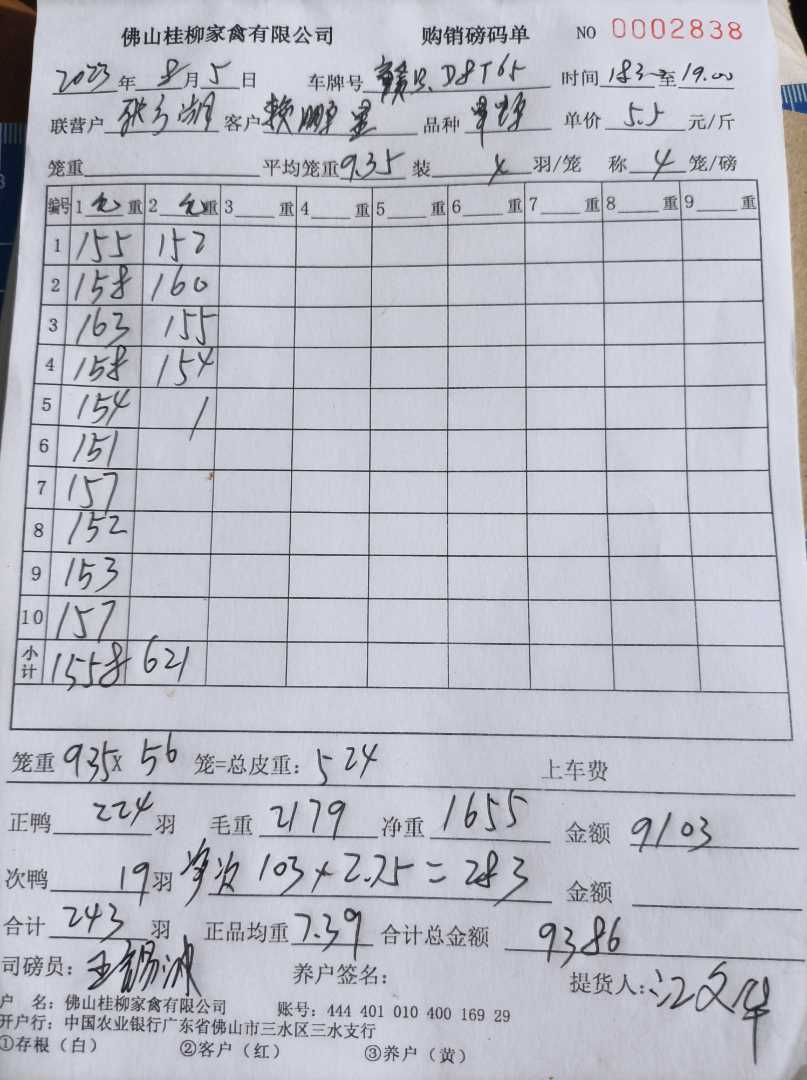 佛山桂柳家禽有限公司 购销磅码单 NO 0002838
2023年8月5日 车牌号 赣 D8T65 时间 183 至 19.00
联营户 客户 赖鹏星 品种 单价 5.5 元/斤
笼重 平均笼重 9.35 装 4 羽/笼 称 4 笼/磅
编号 1 重 2 重 3 重 4 重 5 重 6 重 7 重 8 重 9 重
1 155 152
2 158 160
3 163 155
4 158 154
5 154 /
6 151
7 157
8 152
9 153
10 157
小计 1558 621
笼重 935 x 56 笼=总皮重: 524 上车费
正鸭 224 羽 毛重 2179 净重 1655 金额 9103
次鸭 19 羽 净次 103 x 2.75 = 283 金额
合计 243 羽 正品均重 7.39 合计总金额 9386
司磅员: 王锡冰 养户签名: 提货人: 江文华
户 名: 佛山桂柳家禽有限公司 账号: 444 401 010 400 169 29
开户行: 中国农业银行广东省佛山市三水区三水支行
①存根（白） ②客户（红） ③养户（黄）